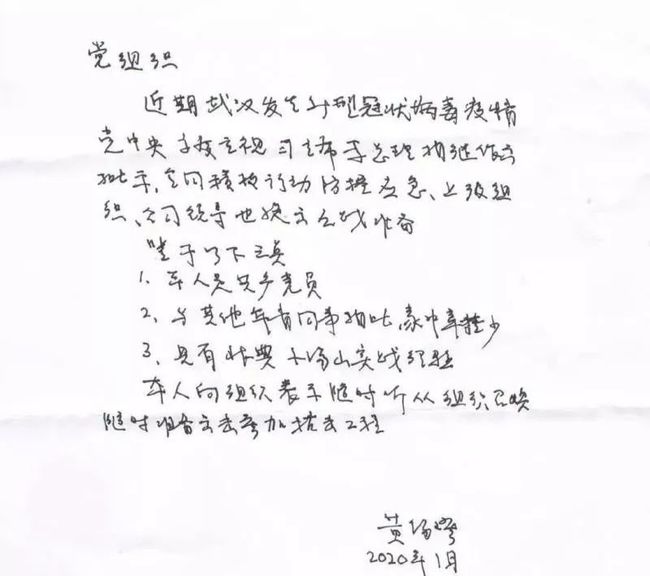 党组织
近期武汉发生新型冠状病毒疫情
党中央高度重视 习主席李总理相继作出
批示,全国积极行动防控应急、上级组
织、公司领导也提出应战准备
鉴于以下三点
1. 本人是共产党员
2. 与其他年青同事相比,家中牵挂少
3. 具有非典小汤山实战经验
本人向组织表示随时听从组织召唤
随时准备出去参加抗击工程
黄
2020年1月